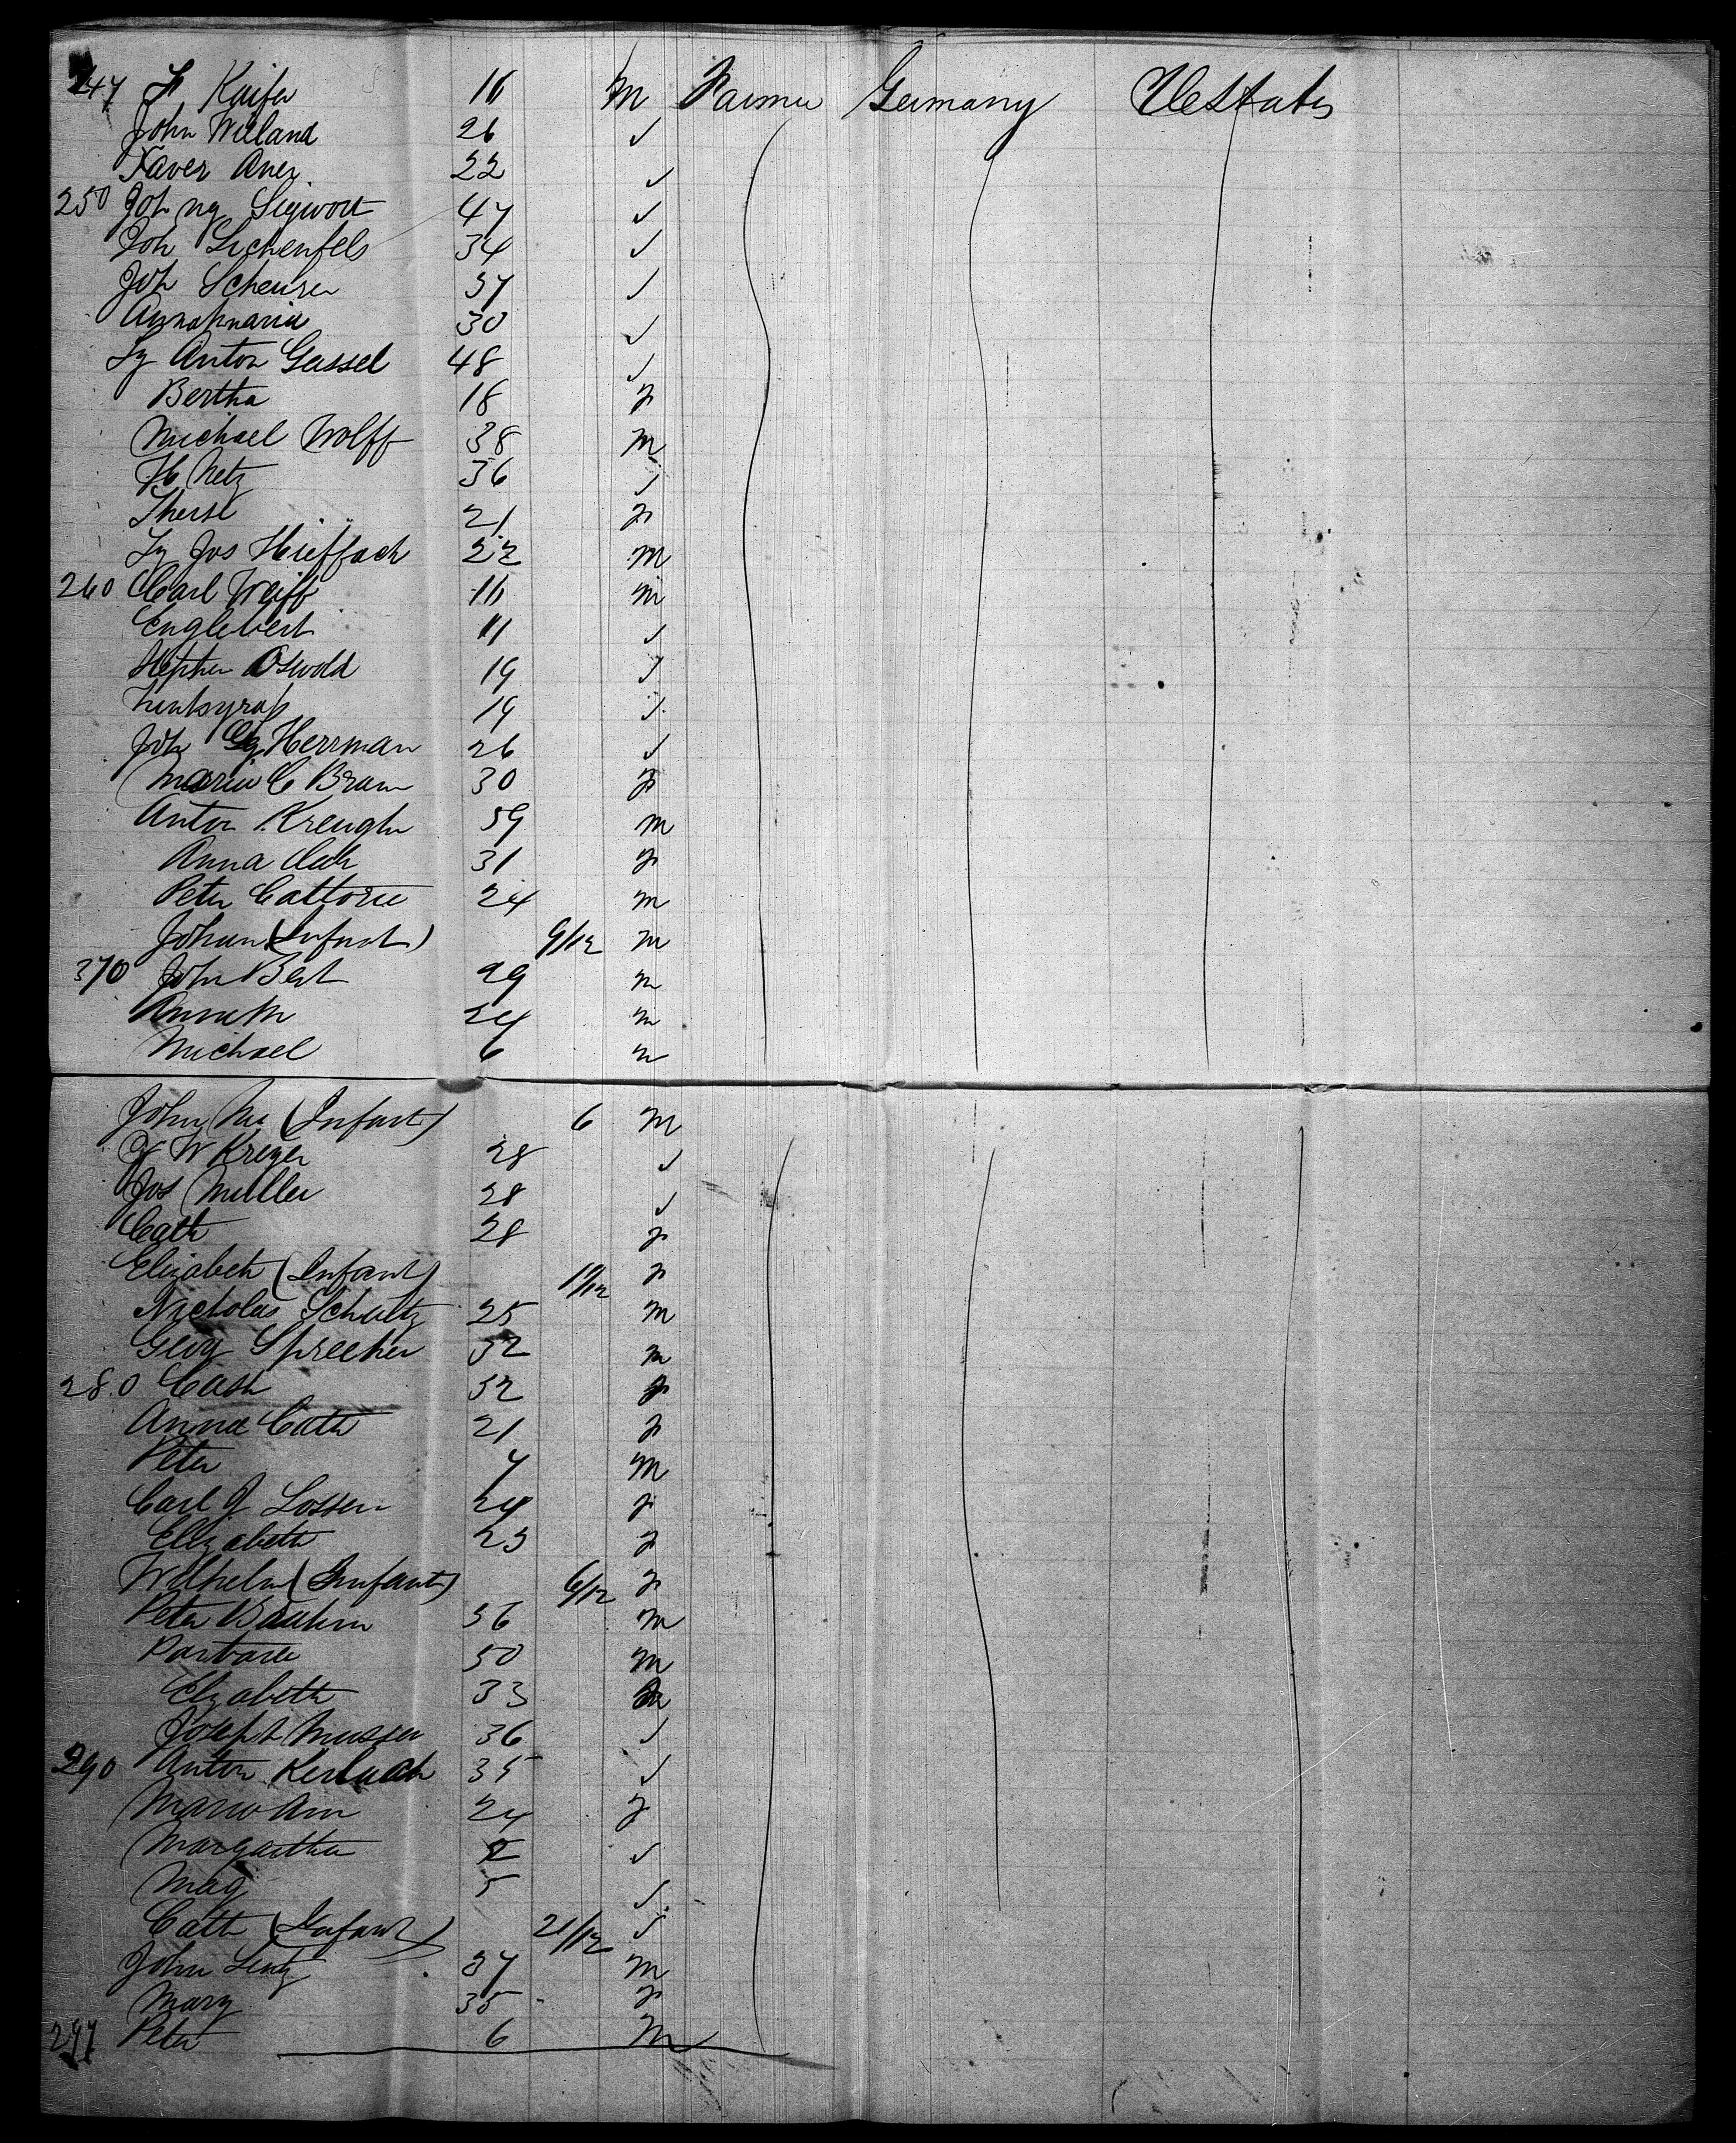 247 Kaifer 16 M Farmer Germany U States
John Willand 26 ✓
Xaver Auer 22 ✓
250 Joh Ng Sigwort 47 ✓
Joh Lichenfels 34 ✓
Joh Scheurer 37 ✓
Annamaria 30 ✓
Anton Gassel 48 ✓
Bertha 18 F
Michael Wolff 38 M
H Netz 36 ✓
Therse 21 F
Jos 22 M
260 Carl Weiff 16 M
Englebert 11 ✓
Stephen Oswold 19 ✓
19 ✓
Joh Gg Herrman 26 ✓
Maria C Braun 30 F
Anton 59 M
Anna 31 F
Peter Cattorie 24 M
Johan (Infant) 9/12 M
370 John Bert 29 M
Anna M 24 M
Michael 6 M
John (Infant) 6 M
W Kreyer 28 ✓
Jos Muller 28 ✓
Cath 28 F
Elizabeth (Infant) 10/12 F
Nicholas Schultz 25 M
Georg Sprecher 32 M
280 Cash 32 F
Anna Cath 21 F
Peter 7 M
Carl J. Lossen 24 F
Elizabeth 23 F
Wilhelm (Infant) 6/12 F
Peter 36 M
Barbara 50 M
Elzabeth 33
Joseph Musser 36 ✓
290 Anton Kerluach 35 ✓
Maria Ann 24 F
Margaetha ✓
Mag 5 ✓
Cath (Infant) 21/12 ✓
John Lentz 37 M
Mary 35 F
297 Peter 6 M